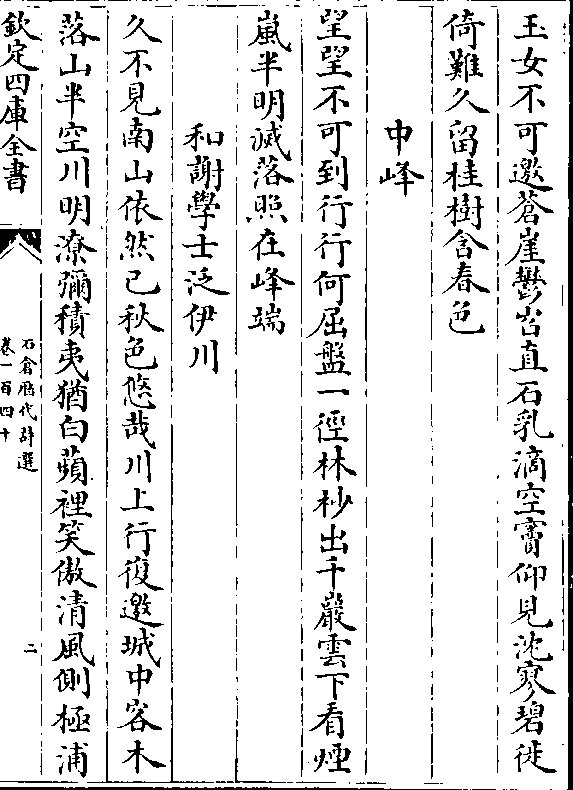 玉女不可邀蒼崖鬱岧直石乳滴空竇仰見沈寥碧徙
倚難久留桂樹含春色
中峰
望望不可到行行何屈盤一徑林杪出千巖雲下看煙
嵐半明滅落照在峰端
和謝學士泛伊川
久不見南山依然已秋色悠哉川上行復邀城中客木
落山半空川明潦彌積夷猶白蘋裡笑傲清風側極浦
欽定四庫全書
石倉歷代詩選
卷一百四十
二